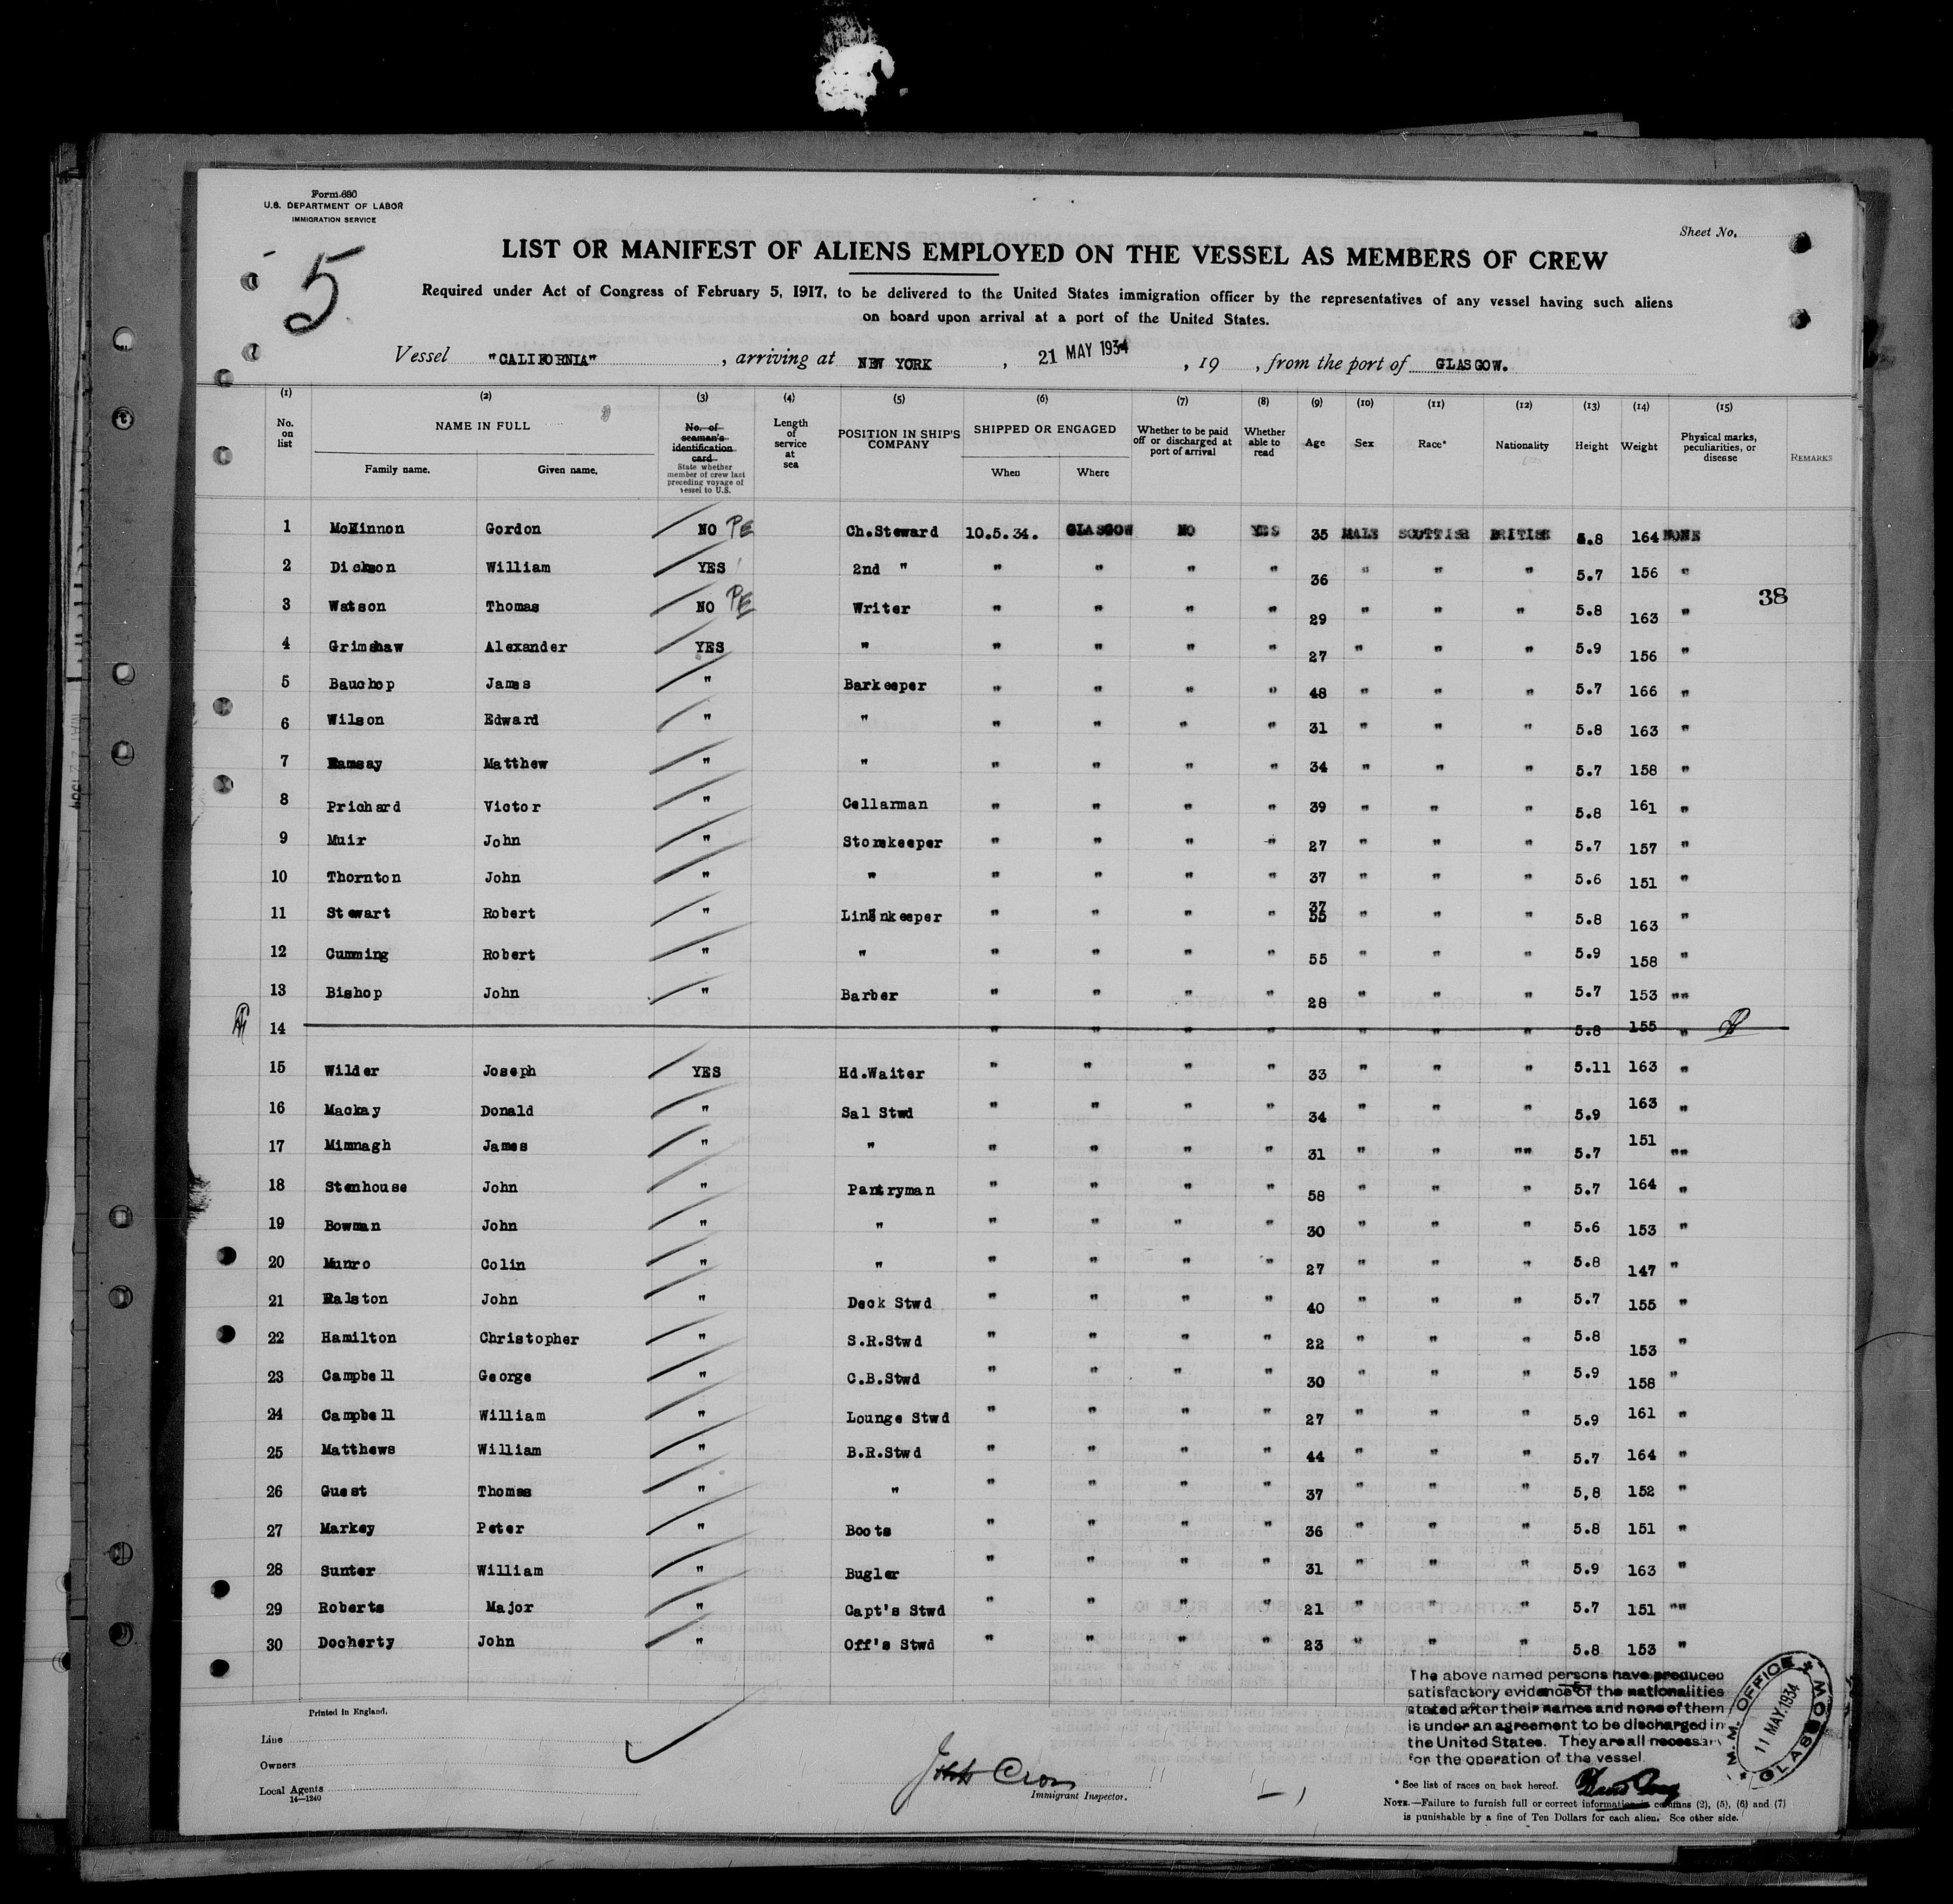 Form 680
U.S. DEPARTMENT OF LABOR
IMMIGRATION SERVICE
Sheet No.
5
LIST OR MANIFEST OF ALIENS EMPLOYED ON THE VESSEL AS MEMBERS OF CREW
Required under Act of Congress of February 5, 1917, to be delivered to the United States immigration officer by the representatives of any vessel having such aliens
on board upon arrival at a port of the United States.
Vessel "CALIFORNIA", arriving at NEW YORK, 21 MAY 1934, 19 , from the port of GLASGOW.
(1) (2) (3) (4) (5) (6) (7) (8) (9) (10) (11) (12) (13) (14) (15)
No. on list NAME IN FULL Family name. Given name. No. of seaman's identification card State whether member of crew last preceding voyage of vessel to U.S. Length of service at sea POSITION IN SHIP'S COMPANY SHIPPED OR ENGAGED When Where Whether to be paid off or discharged at port of arrival Whether able to read Age Sex Race* Nationality Height Weight Physical marks, peculiarities, or disease REMARKS
1 McKinnon Gordon NO PE Ch.Steward 10.5.34. GLASGOW NO YES 35 MALE SCOTTISH BRITISH 5.8 164 NONE
2 Dickson William YES 2nd " " " " " 36 " " " 5.7 156 "
38
3 Watson Thomas NO PE Writer " " " " 29 " " " 5.8 163 "
4 Grimshaw Alexander YES " " " " " 27 " " " 5.9 156 "
5 Bauchop James " Barkeeper " " " " 48 " " " 5.7 166 "
6 Wilson Edward " " " " " " 31 " " " 5.8 163 "
7 Ramsay Matthew " " " " " " 34 " " " 5.7 158 "
8 Prichard Victor " Cellarman " " " " 39 " " " 5.8 161 "
9 Muir John " Storekeeper " " " " 27 " " " 5.7 157 "
10 Thornton John " " " " " " 37 " " " 5.6 151 "
11 Stewart Robert " Linenkeeper " " " " 37 55 " " " 5.8 163 "
12 Cumming Robert " " " " " " 55 " " " 5.9 158 "
13 Bishop John " Barber " " " " 28 " " " 5.7 153 ""
14 " " " " " " " 5.8 155 "
15 Wilder Joseph YES Hd.Waiter " " " " 33 " " " 5.11 163 "
16 Mackay Donald " Sal Stwd " " " " 34 " " " 5.9 163 "
17 Mimnagh James " " " " " " 31 " " "" 5.7 151 ""
18 Stenhouse John " Pantryman " " " " 58 " " " 5.7 164 "
19 Bowman John " " " " " " 30 " " " 5.6 153 "
20 Munro Colin " " " " " " 27 " " " 5.8 147 "
21 Ralston John " Deck Stwd " " " " 40 " " " 5.7 155 "
22 Hamilton Christopher " S.R.Stwd " " " " 22 " " " 5.8 153 "
23 Campbell George " C.B.Stwd " " " " 30 " " " 5.9 158 "
24 Campbell William " Lounge Stwd " " " " 27 " " " 5.9 161 "
25 Matthews William " B.R.Stwd " " " " 44 " " " 5.7 164 "
26 Guest Thomas " " " " " " 37 " " " 5,8 152 "
27 Markey Peter " Boots " " " " 36 " " " 5.8 151 "
28 Sunter William " Bugler " " " " 31 " " " 5.9 163 "
29 Roberts Major " Capt's Stwd " " " " 21 " " " 5.7 151 ""
30 Docherty John " Off's Stwd " " " " 23 " " " 5.8 153 "
The above named persons have produced
satisfactory evidence of the nationalities
stated after their names and none of them
is under an agreement to be discharged in
the United States. They are all necessary
for the operation of the vessel.
M.M. OFFICE GLASGOW
11 MAY. 1934
Printed in England.
Line
Owners
Local Agents
14—1240
John Cron
Immigrant Inspector.
* See list of races on back hereof.
NOTE.—Failure to furnish full or correct information in columns (2), (5), (6) and (7)
is punishable by a fine of Ten Dollars for each alien. See other side.